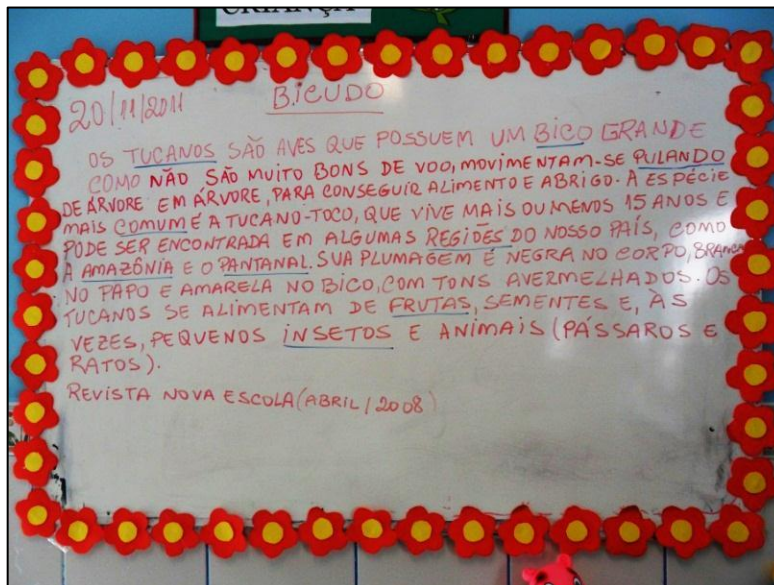 CRIANÇA
20/11/2011 BICUDO
OS TUCANOS SÃO AVES QUE POSSUEM UM BICO GRANDE
COMO NÃO SÃO MUITO BONS DE VOO, MOVIMENTAM-SE PULANDO
DE ÁRVORE EM ÁRVORE, PARA CONSEGUIR ALIMENTO E ABRIGO. A ESPÉCIE
MAIS COMUM É A TUCANO-TOCO, QUE VIVE MAIS OU MENOS 15 ANOS E
PODE SER ENCONTRADA EM ALGUMAS REGIÕES DO NOSSO PAÍS, COMO
A AMAZÔNIA E O PANTANAL. SUA PLUMAGEM É NEGRA NO CORPO, BRANCA
NO PAPO E AMARELA NO BICO, COM TONS AVERMELHADOS. OS
TUCANOS SE ALIMENTAM DE FRUTAS, SEMENTES E, ÀS
VEZES, PEQUENOS INSETOS E ANIMAIS (PÁSSAROS E
RATOS).
REVISTA NOVA ESCOLA (ABRIL/2008)